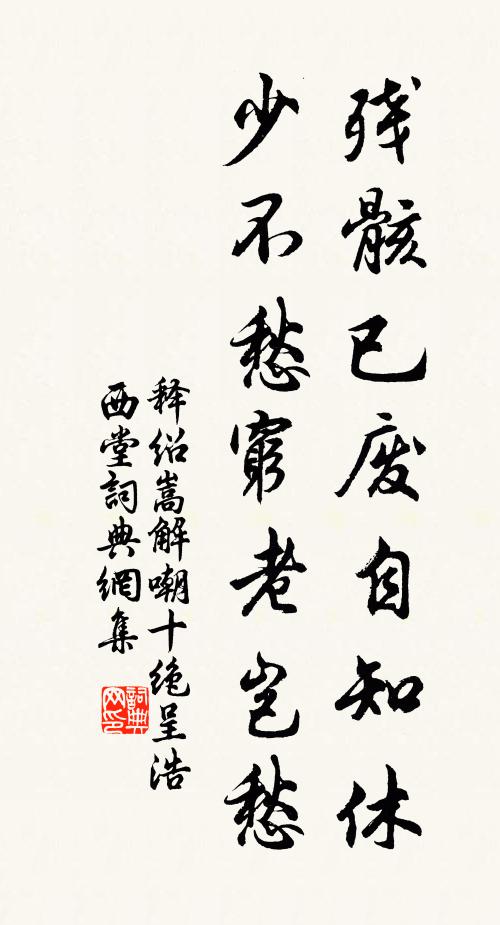 残骸已废自知休
少不愁穷老岂愁
释绍嵩解嘲十绝呈浩
西堂詞典網集
詞典网印